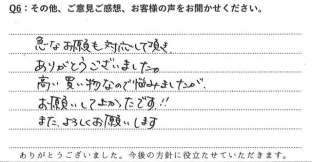 Q6：その他、ご意見ご感想、お客様の声をお聞かせください。
急なお願も対応して頂き
ありがとうございました。
高い買い物なので悩みましたが、
お願いしてよかったです!!
また、よろしくお願いします
ありがとうございました。今後の方針に役立たせていただきます。